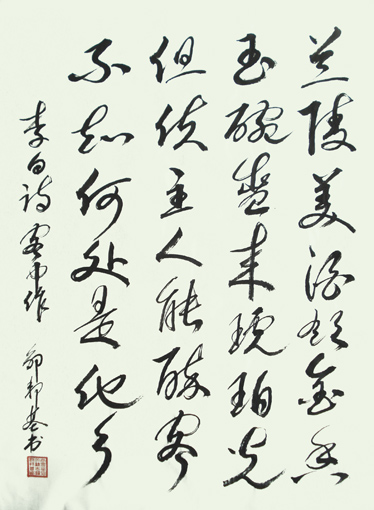 兰陵美酒郁金香
玉碗盛来琥珀光
但使主人能醉客
不知何处是他乡
李白诗客中作 书